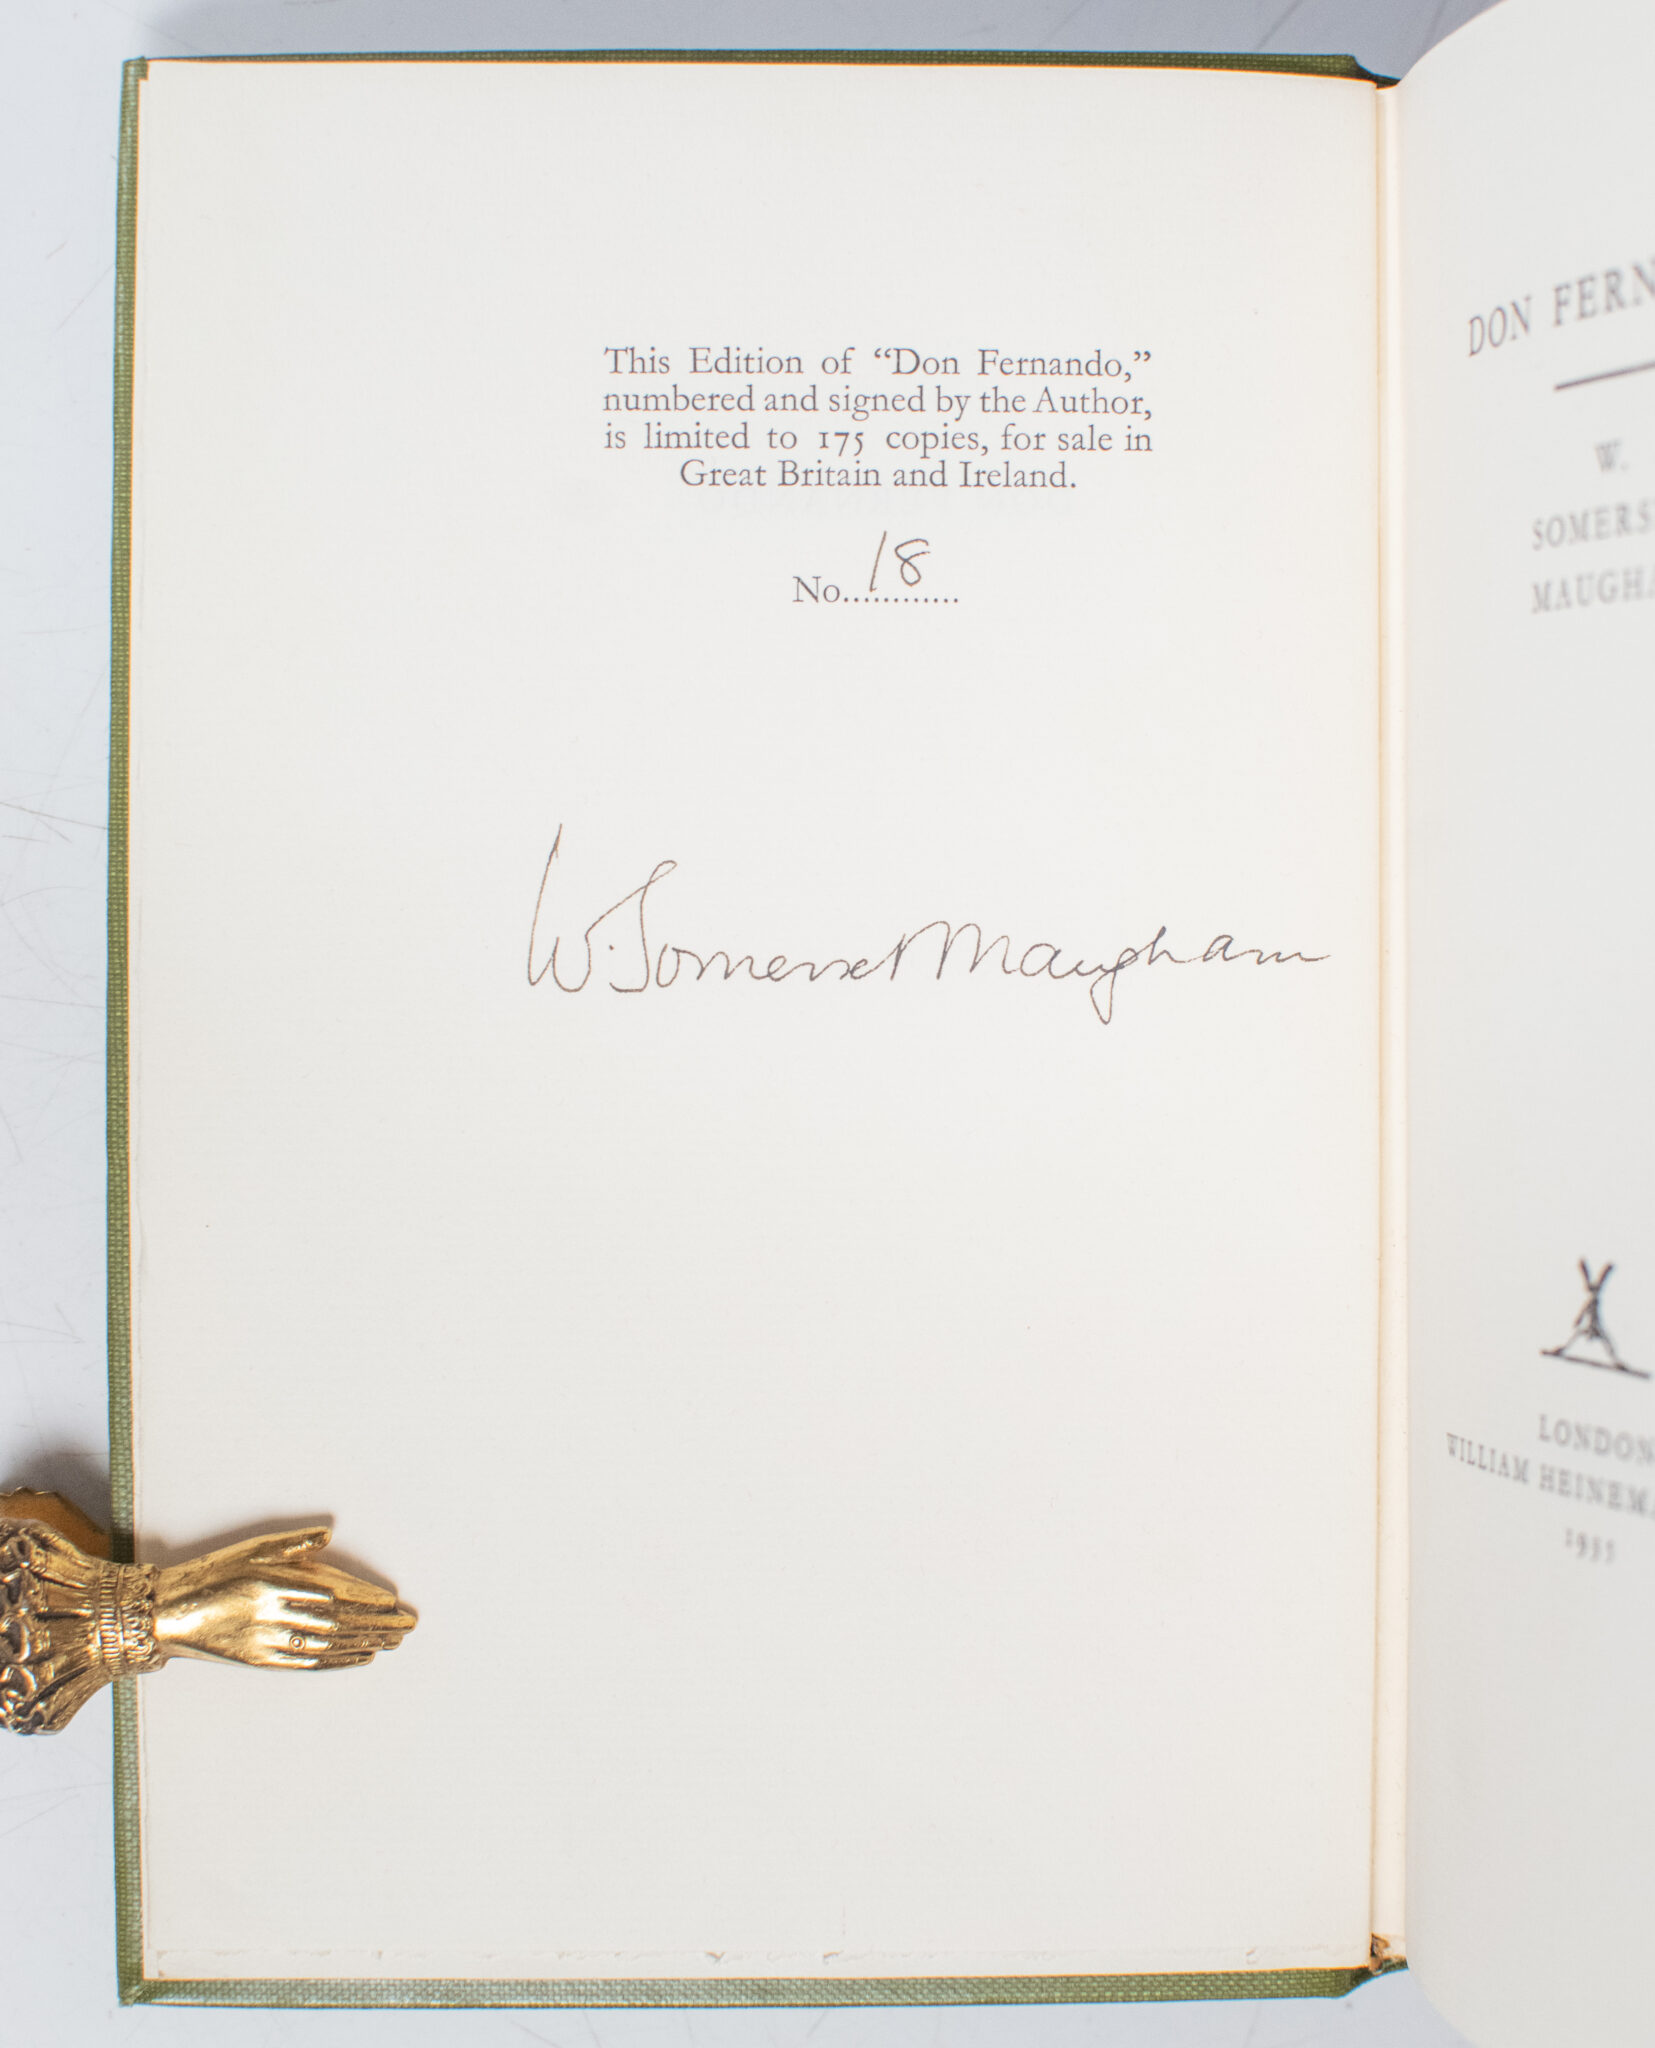 This Edition of “Don Fernando,”
numbered and signed by the Author,
is limited to 175 copies, for sale in
Great Britain and Ireland.
No............
18
W. Somerset Maugham
DON FERN
W.
SOMERS
MAUGHA
LONDON
WILLIAM HEINEMA
1935